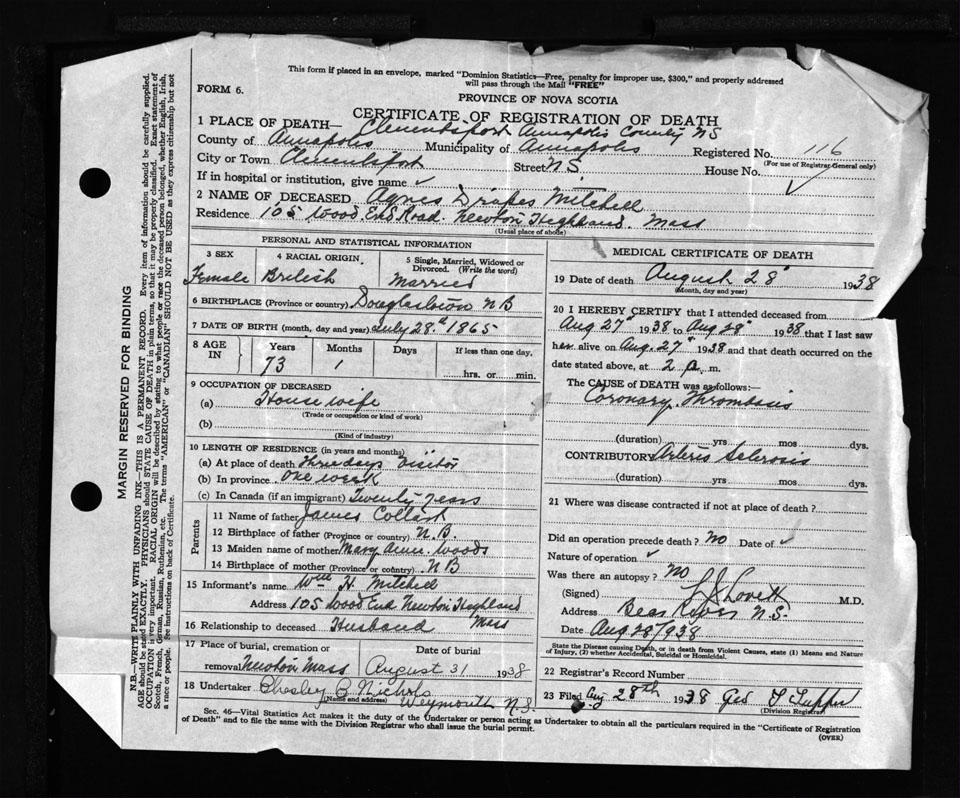 This form if placed in an envelope, marked "Dominion Statistics—Free, penalty for improper use, $300," and properly addressed
will pass through the Mail "FREE"
FORM 6.
PROVINCE OF NOVA SCOTIA
CERTIFICATE OF REGISTRATION OF DEATH
1 PLACE OF DEATH— Clementsport Annapolis County NS
County of Annapolis Municipality of Annapolis Registered No. 116
(For use of Registrar-General only)
City or Town Clementsport Street NS. House No.
If in hospital or institution, give name ✓
2 NAME OF DECEASED Agnes Mitchell
Residence 105 Wood End Road. Newton Highland. Mass
(Usual place of abode)
PERSONAL AND STATISTICAL INFORMATION
3 SEX 4 RACIAL ORIGIN. 5 Single, Married, Widowed or
Divorced. (Write the word)
Female British Married
6 BIRTHPLACE (Province or country) Douglastown NB
7 DATE OF BIRTH (month, day and year) July 28th 1865
8 AGE IN Years Months Days If less than one day.
73 1 hrs. or min.
9 OCCUPATION OF DECEASED
(a) House wife
(Trade or occupation or kind of work)
(b)
(Kind of industry)
10 LENGTH OF RESIDENCE (in years and months)
(a) At place of death Three days Visitor
(b) In province One week
(c) In Canada (if an immigrant) Twenty years
Parents
11 Name of father James Collart
12 Birthplace of father (Province or country) N.B.
13 Maiden name of mother Mary Ann. Woods
14 Birthplace of mother (Province or country) NB
15 Informant's name Wm H. Mitchell
Address 105 Wood End Newton Highland
Mass
16 Relationship to deceased Husband
17 Place of burial, cremation or Date of burial
removal Newton Mass August 31 1938
18 Undertaker Chesley C Nichols
(Name and address) Weymouth N.S.
MEDICAL CERTIFICATE OF DEATH
19 Date of death August 28" 1938
(Month, day and year)
20 I HEREBY CERTIFY that I attended deceased from
Aug 27" 1938 to Aug 28" 1938 that I last saw
her alive on Aug. 27" 1938 and that death occurred on the
date stated above, at 2 p. m.
The CAUSE of DEATH was as follows:—
Coronary Thrombosis
(duration) yrs mos dys.
CONTRIBUTORY Arterio Sclerosis
(duration) yrs. mos. dys.
21 Where was disease contracted if not at place of death?
Did an operation precede death? No Date of ✓
Nature of operation ✓
Was there an autopsy? No
(Signed) L J Lovett M.D.
Address Bear River N.S.
Date Aug 28/1938
State the Disease causing Death, or in death from Violent Causes, state (1) Means and Nature
of Injury, (2) whether Accidental, Suicidal or Homicidal.
22 Registrar's Record Number
23 Filed Aug 28th 1938 Geo S Tupper
(Division Registrar)
Sec. 46—Vital Statistics Act makes it the duty of the Undertaker or person acting as Undertaker to obtain all the particulars required in the "Certificate of Registration
of Death" and to file the same with the Division Registrar who shall issue the burial permit.
(OVER)
MARGIN RESERVED FOR BINDING
N.B.—WRITE PLAINLY WITH UNFADING INK—THIS IS A PERMANENT RECORD. Every item of information should be carefully supplied.
AGE should be stated EXACTLY. PHYSICIANS should STATE CAUSE OF DEATH in plain terms, so that it may be properly classified. Exact statement of
OCCUPATION is very important. RACIAL ORIGIN will be described by stating to what people or race the deceased person belonged, whether English, Irish,
Scotch, French, German, Russian, Ruthenian, etc. The terms "AMERICAN" or "CANADIAN" SHOULD NOT BE USED as they express citizenship but not
a race or people. See instructions on back of Certificate.